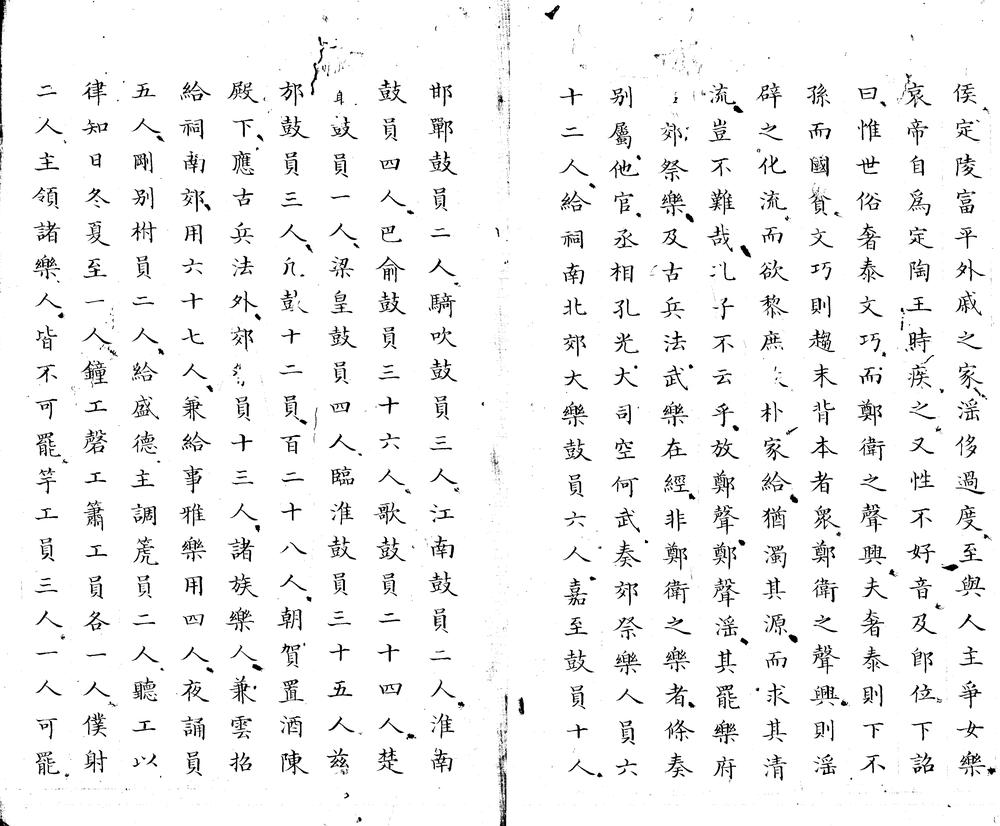 侯定陵富平外戚之家滛侈過度至與人主爭女樂
哀帝自爲定陶王時疾之又性不好音及卽位下詔
曰惟世俗奢泰文巧而鄭衛之聲興夫奢泰則下不
孫而國貧文巧則趨末背本者衆鄭衛之聲興則滛
辟之化流而欲黎庶朴家給猶濁其源而求其清
流豈不難哉孔子不云乎放鄭聲鄭聲滛其罷樂府
郊祭樂及古兵法武樂在經非鄭衛之樂者條奏
别屬他官丞相孔光大司空何武奏郊祭樂人員六
十二人給祠南北郊大樂鼓員六人嘉至鼓員十人
邯鄲鼓員二人騎吹鼓員三人江南鼓員二人淮南
鼓員四人巴俞鼓員三十六人歌鼓員二十四人楚
鼓員一人梁皇鼓員四人臨淮鼓員三十五人茲
邡鼓員三人凡鼓十二員百二十八人朝賀置酒陳
殿下應古兵法外郊祭員十三人諸族樂人兼雲招
給祠南郊用六十七人兼給事雅樂用四人夜誦員
五人剛别柎員二人給盛德主調箎員二人聽工以
律知日冬夏至一人鐘工磬工簫工員各一人僕射
二人主領諸樂人皆不可罷竽工員三人一人可罷